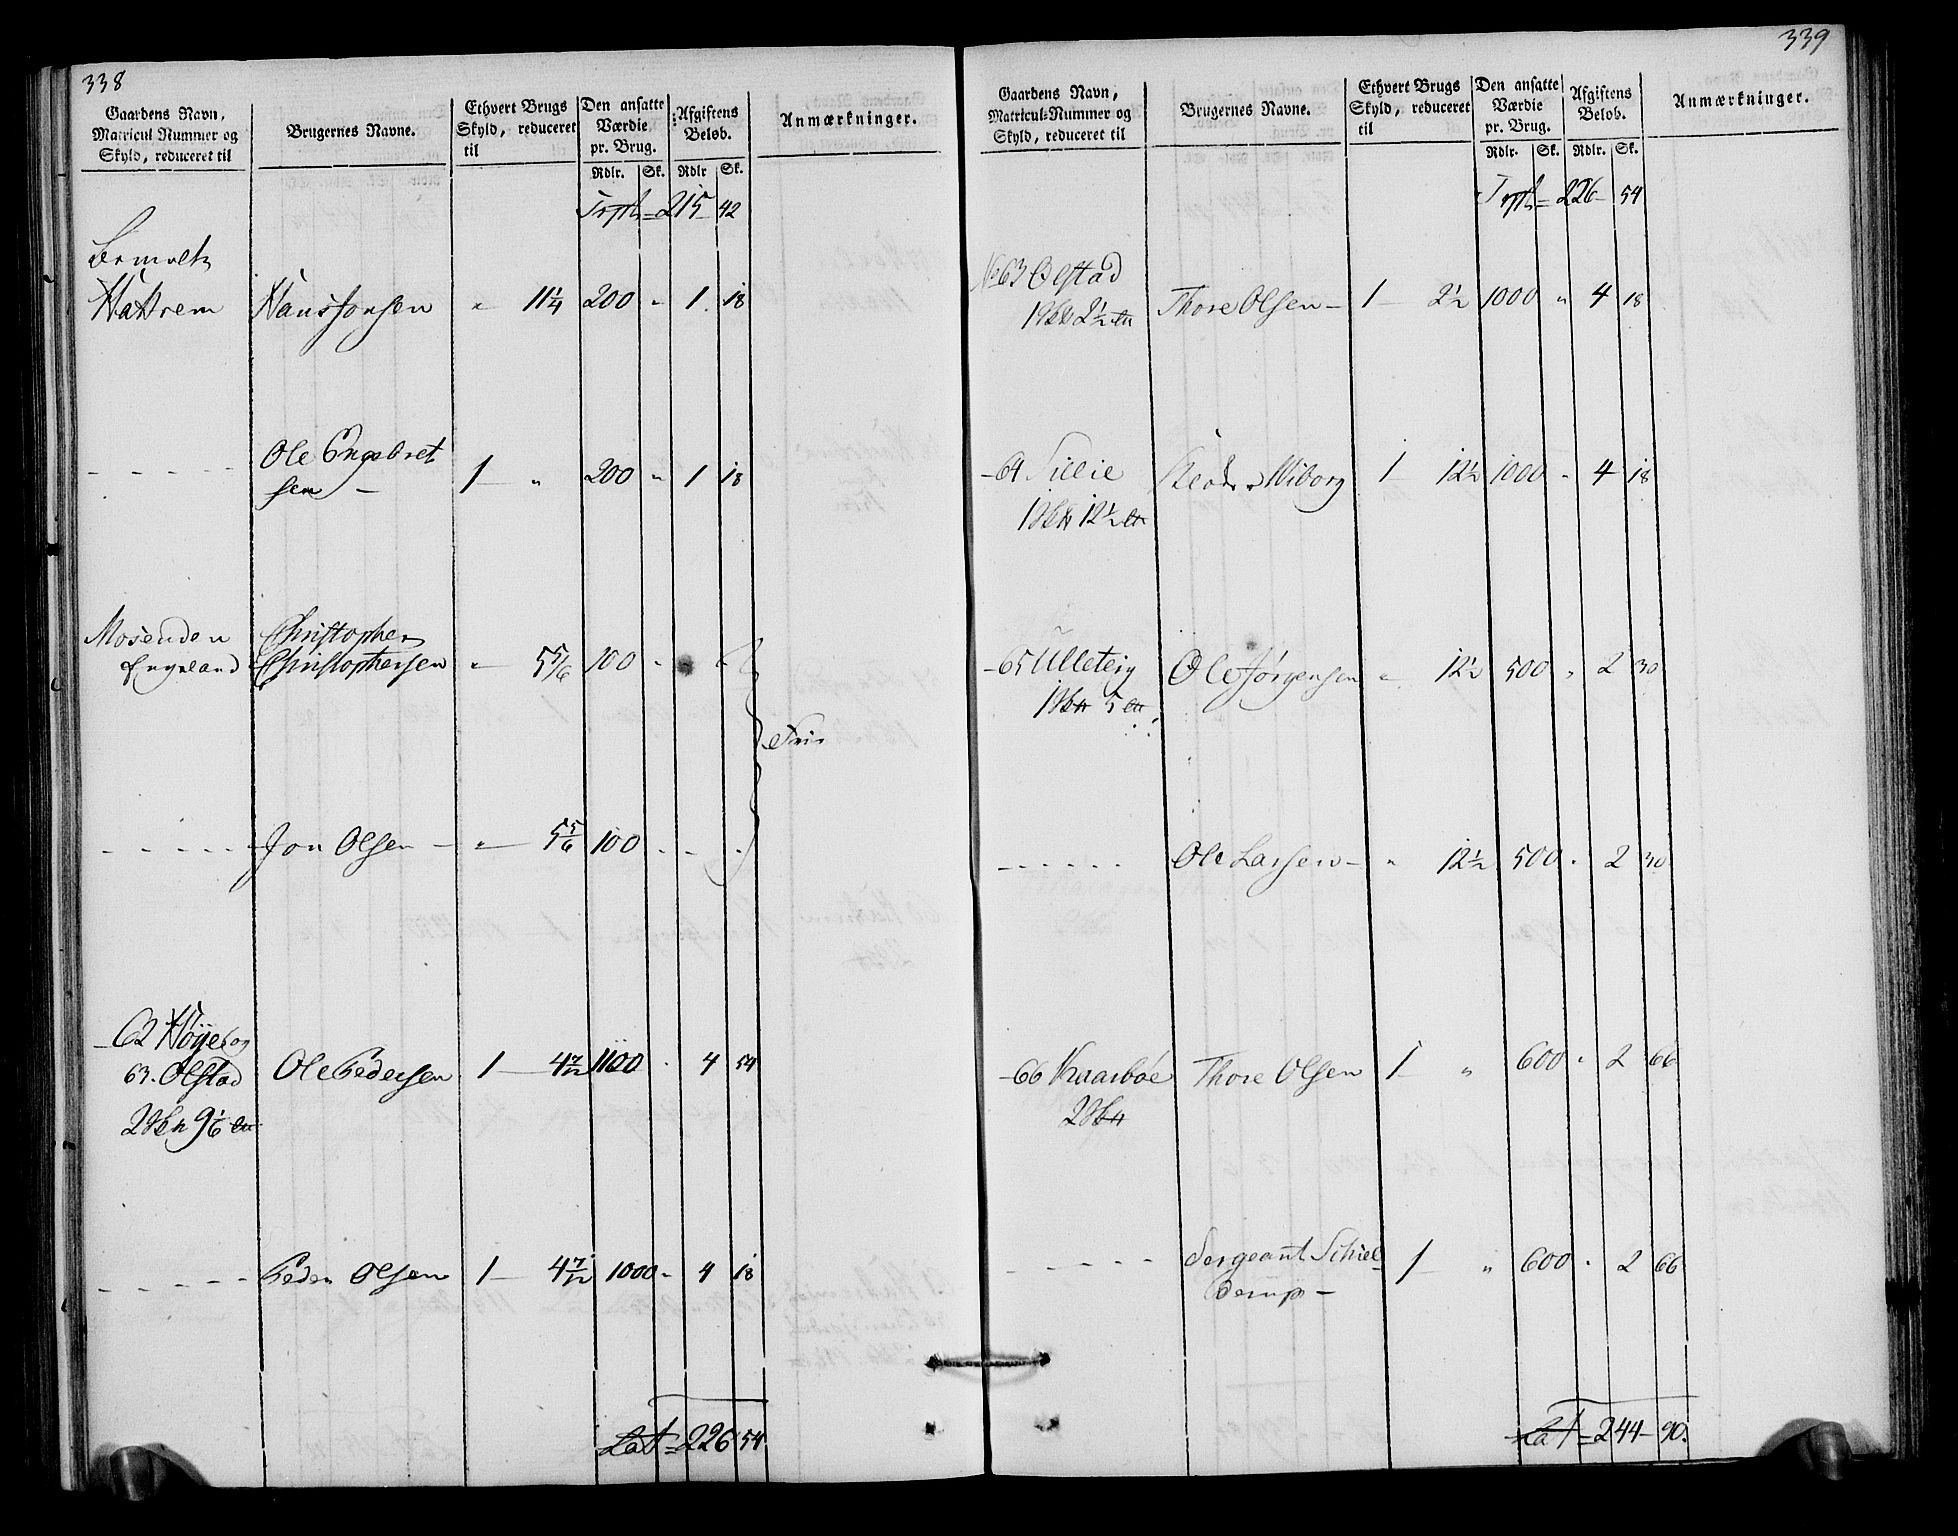 338
Gaardens Navn, Matricul Nummer og Skyld, reduceret til
Brugernes Navne.
Ethvert Brugs Skyld, reduceret til
Den ansatte Værdie pr. Brug.
Afgiftens Beløb.
Anmærkninger.
Rdlr. Sk. Rdlr Sk.
Trpt = 215 42
Hans Jonsen " 11 1/4 200 " 1 18
Ole Engebret
sen – 1 – " 200 " 1 18
Mosenden
Engeland
Christopher
Christophersen " 5 5/6 100 "
Frie
- - - - - Jon Olsen – " 5 5/6 100 - - -
– 62 Høije og
63. Olstad
2 9 1/6
Ole Pedersen 1 – 4 7/12 1100 " 4 54
- - - - - Peder Olsen 1 – 4 7/12 1000 " 4 18
Lat = 226 54
339
Gaardens Navn, Matricul-Nummer og Skyld, reduceret til
Brugernes Navne.
Ethvert Brugs Skyld, reduceret til
Den ansatte Værdie pr. Brug.
Afgiftens Beløb.
Anmærkninger.
Rdlr. Sk. Rdlr. Sk.
Trpt = 226 54
No 63 Olstad
1 2 1/2
Thore Olsen – 1 – 2 1/2 1000 " 4 18
– 64 Lillie
1 12 1/2
Wiborg 1 – 12 1/2 1000 " 4 18
– 65 Ulleterg
1 5
Ole Jørgensen " 12 1/2 500 " 2 30
- - - - - Ole Larsen – " 12 1/2 500 " 2 30
– 66 Kaarbøe
2
Thore Olsen 1 – " 600 " 2 66
- - - - - Sergeant Schiel-
derup – 1 – " 600 " 2 66
Lat = 244 – 90.